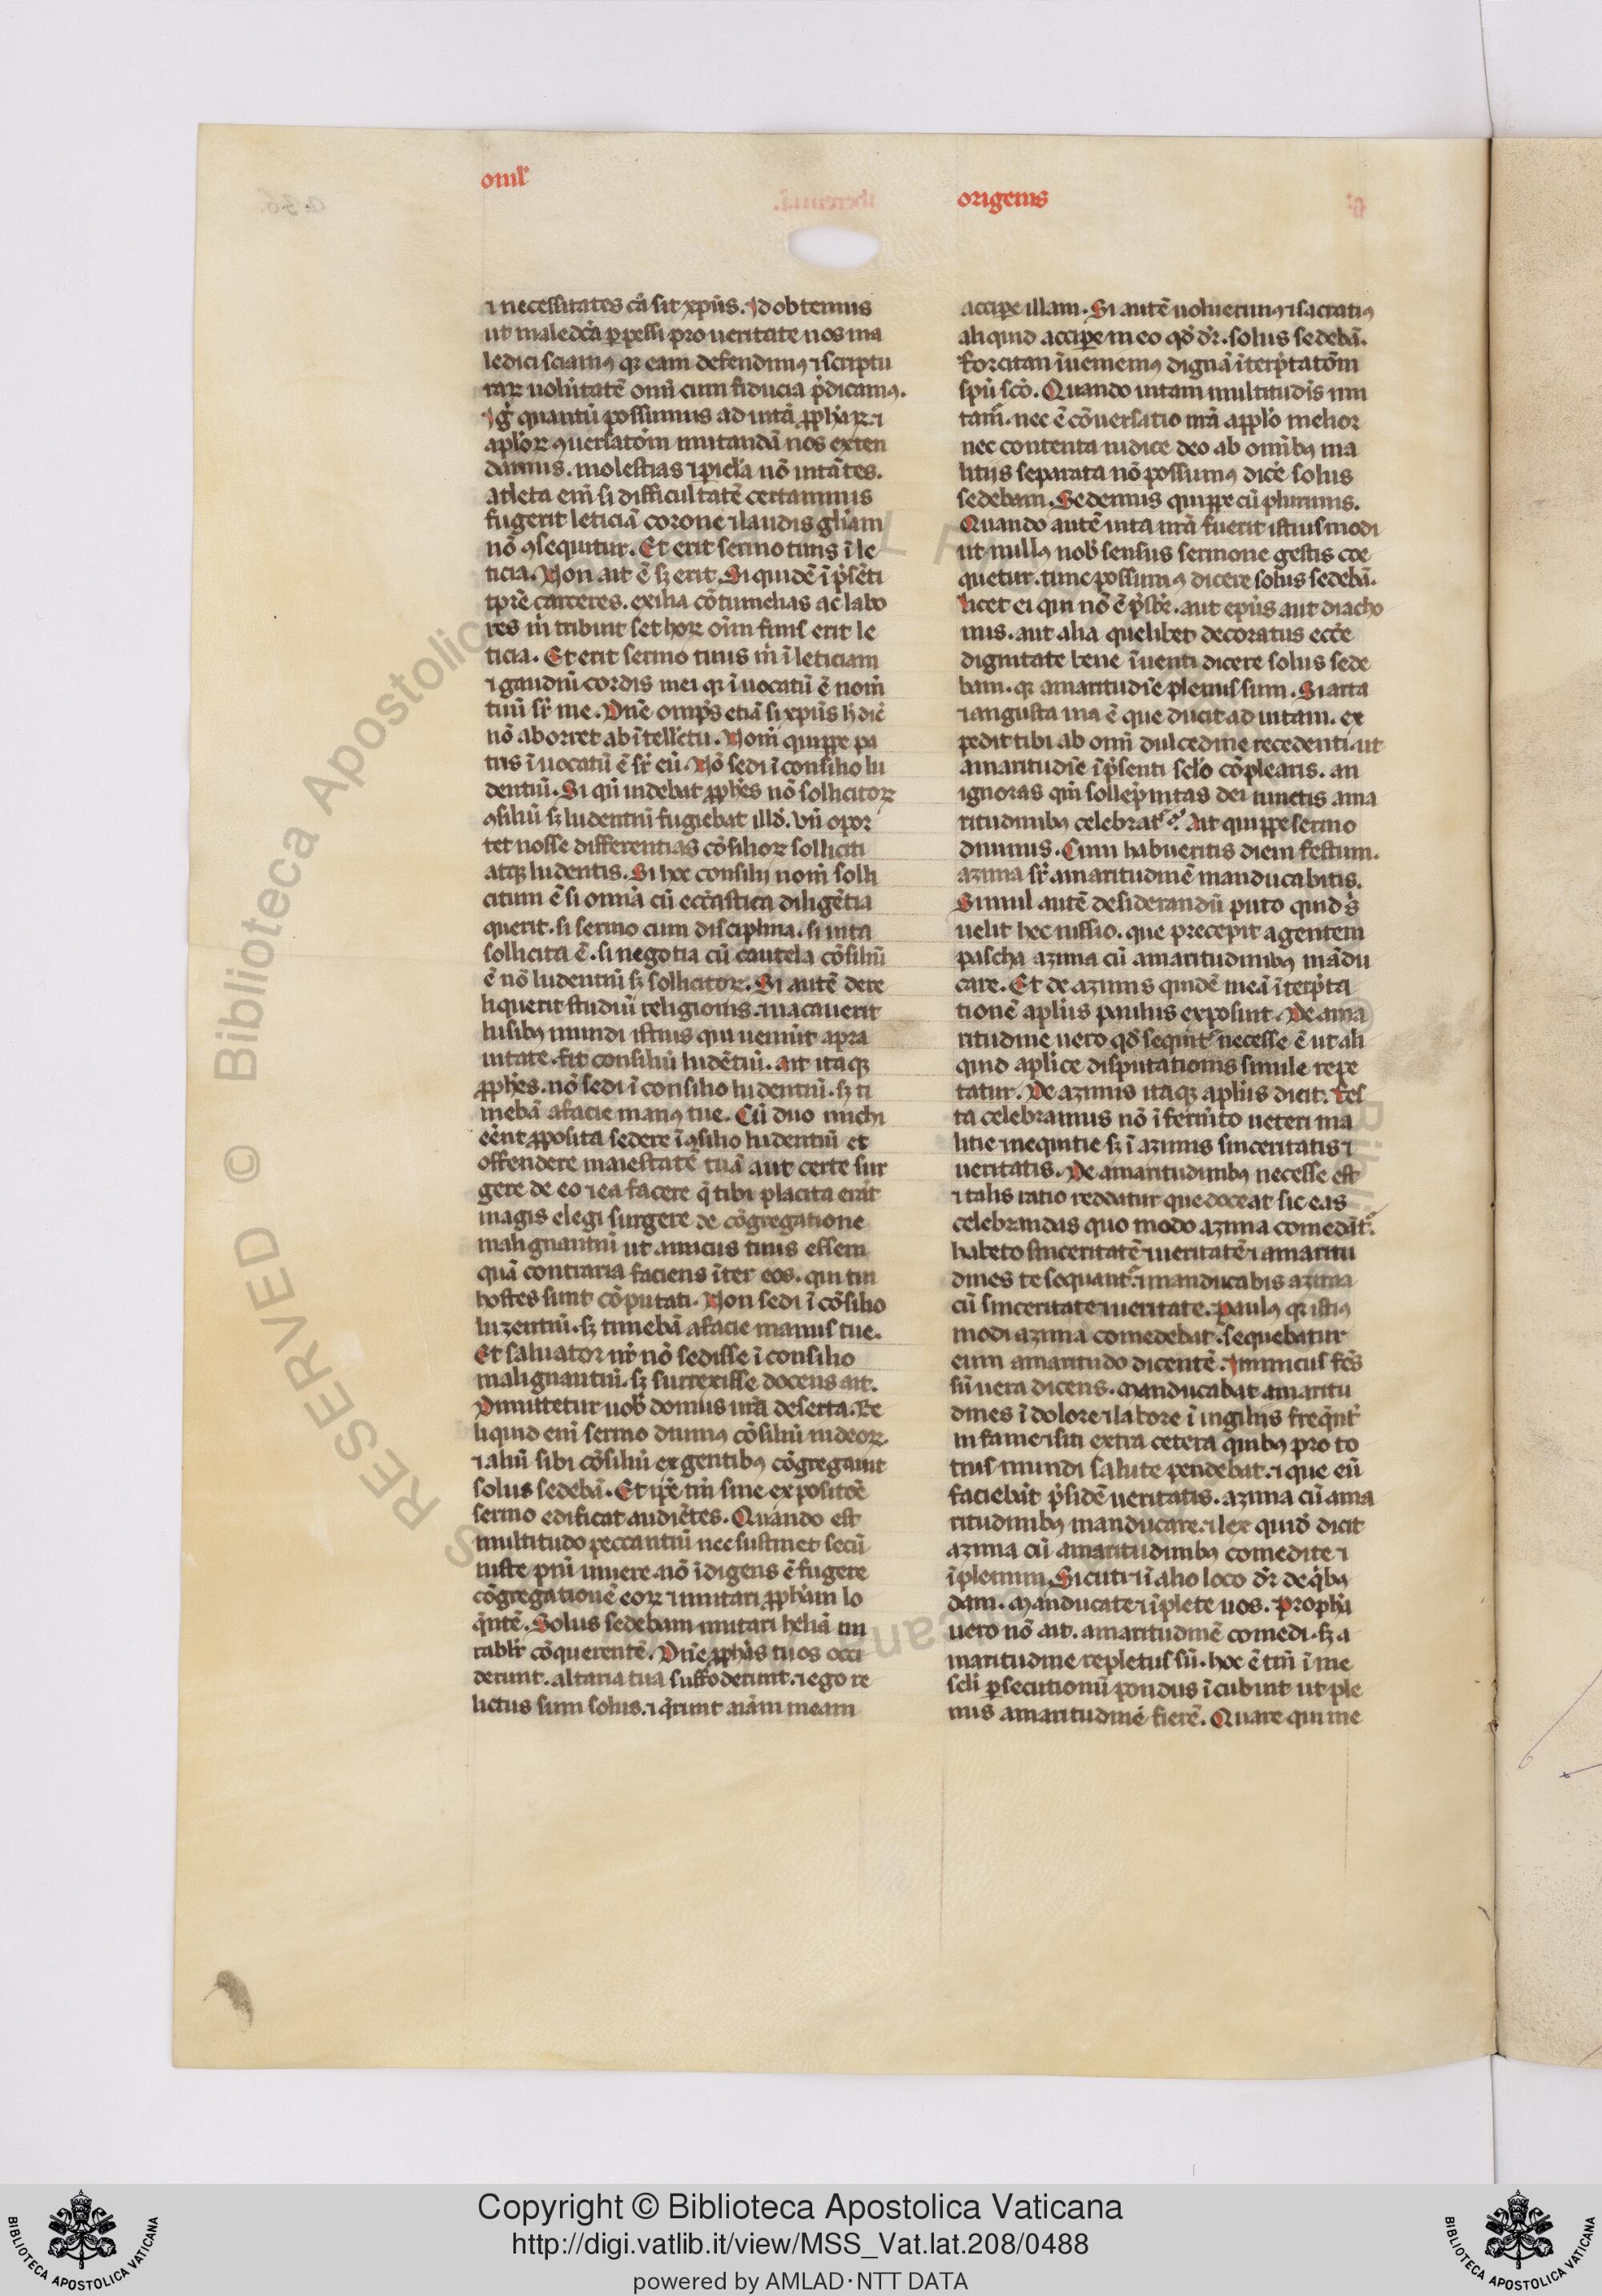 omīl'
origenis
⁊ necessitates cā sit xp̄us. Id obtemus
ut maledc̄a ꝑpessi pro ueritate nos ma
ledici sciamꝰ qꝛ eam defendimꝰ ⁊ scriptu
raꝝ uolūtatē om̄i cum fiducia p̄dicamꝰ.
Igr̄ quantū possumus ad uitā ꝓph̄aꝝ ⁊
ap̄loꝝ ꝯuersatōm mutandā nos exten
damus. molestias ⁊ picl̄a nō uitātes.
atleta em̄ si difficultatē certaminis
fugerit leticiā corone ⁊ laudis gl̄iam
nō ꝯsequitur. Et erit sermo tuus ī le
ticia. Non ait ē sꝫ erit. Si quidē ī p̄sēti
tp̄re carceres. exilia cōtumelias ac labo
res m̄ tribuit set hoꝝ oīm finis erit le
ticia. Et erit sermo tuus m̄ ī leticiam
⁊ gaudiū cordis mei qꝛ īuocatū ē nom̄
tuū sr̄ me. Dn̄e omp̄s etiā si xp̄us h̄ dic̄
nō aborret ab ītell̄ctu. Nom̄ quippe pa
tris īuocatū ē sr̄ eū. Nō sedi ī consilio lu
dentiū. Si qn̄ uidebat ꝓph̄es nō sollicitoꝝ
ꝯsiliū sꝫ ludentiū fugiebat illd̄. Vn̄ opor
tet nosse differentias cōsilioꝝ solliciti
atqꝫ ludentis. Si hoc consilij nom̄ solli
citum ē si omīa cū ecc̄astica diligētia
querit. si sermo cum disciplina. si uita
sollicita ē. si negotia cū cautela cōsiliū
ē nō ludentiū sꝫ sollicitoꝝ. Si autē dere
liquerit studiū religionis. ⁊ uacauerit
lusibꝰ mundi istius qui ueniūt a pra
uitate. fit consiliū ludētiū. ait itaqꝫ
ꝓph̄es. nō sedi ī consilio ludentiū. sꝫ ti
mebā a facie manꝰ tue. Cū duo michi
eēnt ꝓposita sedere ī ꝯsilio ludentiū et
offendere maiestatē tuā aut certe sur
gere de eo ⁊ ea facere q̄ tibi placita erāt
magis elegi surgere de cōgregatione
malignantiū ut amicus tuus essem
quā contraria faciens īter eos. qui tui
hostes sunt cōputati. Non sedi ī cōsilio
luzentiū. sꝫ timebā a facie manus tue.
Et saluator nr̄ nō sedisse ī consilio
malignantiū. sꝫ surrexisse docens ait.
Dimittetur uob̄ domus ur̄a deserta. Re
liquid eni sermo diuinꝰ cōsiliū iudeoꝝ.
⁊ aliū sibi cōsiliū ex gentibꝰ cōgregauit
solus sedebā. Et ip̄e tm̄ sine expositōē
sermo edificat audiētes. Quando est
multitudo peccantiū nec sustinet secū
iuste pn̄i uiuere. nō īdigens ē fugere
cōgregationē eoꝝ ⁊ imitari ꝓph̄am lo
q̄ntē. Solus sedebam imitari heliā mi
rabl'r cōquerentē. Dn̄e ꝓph̄as tuos occi
derunt. altaria tua suffoderunt. ⁊ ego re
lictus sum solus. ⁊ q̄runt aīam meam
accipe illam. Si autē uoluerimꝰ ⁊ sacratiꝰ
aliquid accipe in eo qd̄ dr̄. solus sedebā.
forcitan īueniemꝰ dignā īterp̄tatōm
spū scō. Quando uitam multitudis imi
tam̄. nec ē cōuersatio nr̄a applō melior
nec contenta iudice deo ab omībꝰ ma
litijs separata nō possumꝰ dicē solus
sedebam. Sedemus quippe cū plurimis.
Quando autē uita nr̄a fuerit istiusmodi
ut nullꝰ nob̄ sensus sermone gestis coe
quetur. tunc possumꝰ dicere solus sedebā.
licet ei qui nō ē p̄sbr̄. aut ep̄us aut diacho
nus. aut alia quelibet decoratus ecc̄e
dignitate bene īuenti dicere solus sede
bam. qꝛ amaritudīe plenus sum. Si arta
⁊ angusta uia ē que ducit ad uitam. ex
pedit tibi ab om̄i dulcedine recedenti. ut
amaritudīe ī p̄senti sclo cōplearis. an
ignoras qm̄ sollepnitas dei iunctis ama
ritudinibꝰ celebrat̄ʳ? Ait quippe sermo
diuinus. Cum habueritis diem festum.
azima sr̄ amaritudinē manducabitis.
Simul autē desiderandū puto quid s̄
uelit hec iussio. que precepit agentem
pascha azima cū amaritudinibꝰ mādu
care. Et de azimis quidē meā īterp̄ta
tionē aplūs paulus exposuit. De ama
ritudine uero qd̄ sequit̄ʳ necesse ē ut ali
quid aplice disputationis simile repe
tatur. De azimis itaqꝫ aplūs dicit. fes
ta celebramus nō ī fermīto ueteri ma
litie ⁊ nequitie sꝫ ī azimis sinceritatis ⁊
ueritatis. De amaritudinibꝰ necesse est
⁊ talis ratio reddatur que doceat sic eas
celebrandas quo modo azima comedāt̄ʳ.
habeto sinceritatē ⁊ ueritatē ⁊ amaritu
dines te sequant̄ʳ. ⁊ manducabis azima
cū sinceritate ⁊ ueritate. Paulꝰ qꝛ istiꝰ
modi azima comedebat. sequebatur
eum amaritudo dicentē. Inimicus fc̄s
sū uera dicens. manducabat amaritu
dines ī dolore ⁊ labore ī uigiliis freq̄nt̄
in fame ⁊ siti extra cetera quibꝰ pro to
tius mundi salute pendebat. ⁊ que eū
faciebāt p̄sidē ueritatis. azima cū ama
ritudinibꝰ manducare. ⁊ lex quid̄ dicit
azima cū amaritudinibꝰ comedite ⁊
īplemim. Sicuti ⁊ ī alio loco dr̄ de q̄bꝰ
dam. Manducate ⁊ īplete uos. Proph̄a
uero nō ait. amaritudinē comedi. sꝫ a
maritudine repletus sū. hoc ē tm̄ ī me
scl̄i ꝑsecutionū pondus īcubuit ut ple
nus amaritudinē fierē. Quare qui me
RESERVED © Biblioteca Apostolica
Copyright © Biblioteca Apostolica Vaticana
http://digi.vatlib.it/view/MSS_Vat.lat.208/0488
powered by AMLAD·NTT DATA
BIBLIOTECA APOSTOLICA VATICANA
BIBLIOTECA APOSTOLICA VATICANA